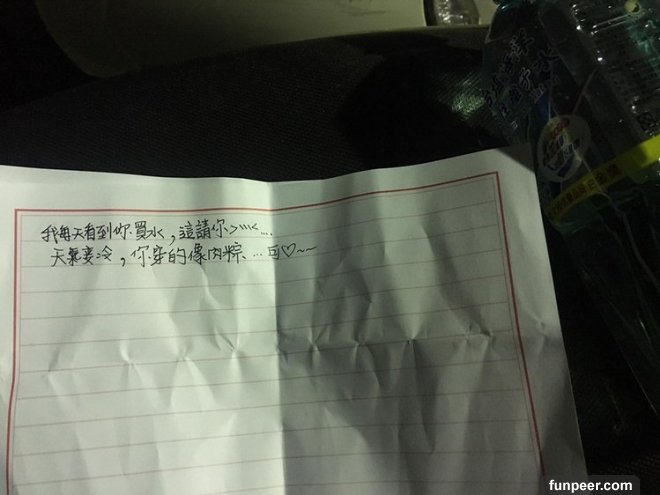 我每天看到你買水，這請你>///<...
天氣變冷，你穿的像肉粽…可♡~~
funpeer.com